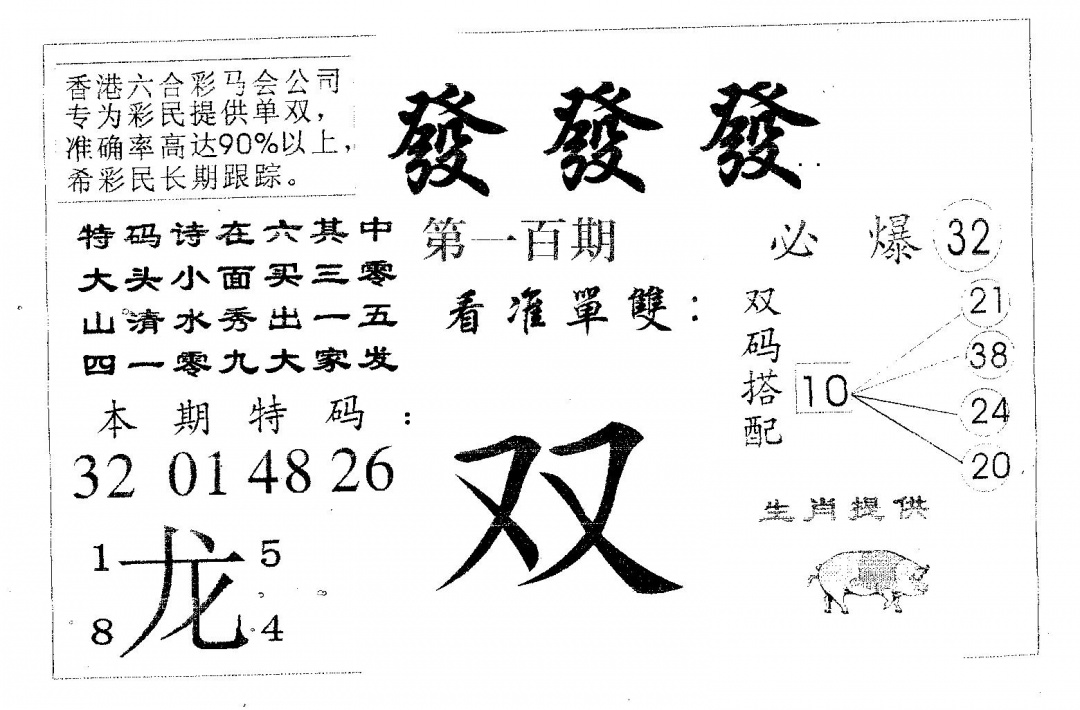 香港六合彩马会公司
专为彩民提供单双，
准确率高达90%以上，
希彩民长期跟踪。
發發發
特码诗在六其中
大头小面买三零
山清水秀出一五
四一零九大家发
本期特码：
32 01 48 26
1 5
龙
8 4
第一百期
看准單雙：
双
必爆 32
双码搭配
10
21
38
24
20
生肖提供